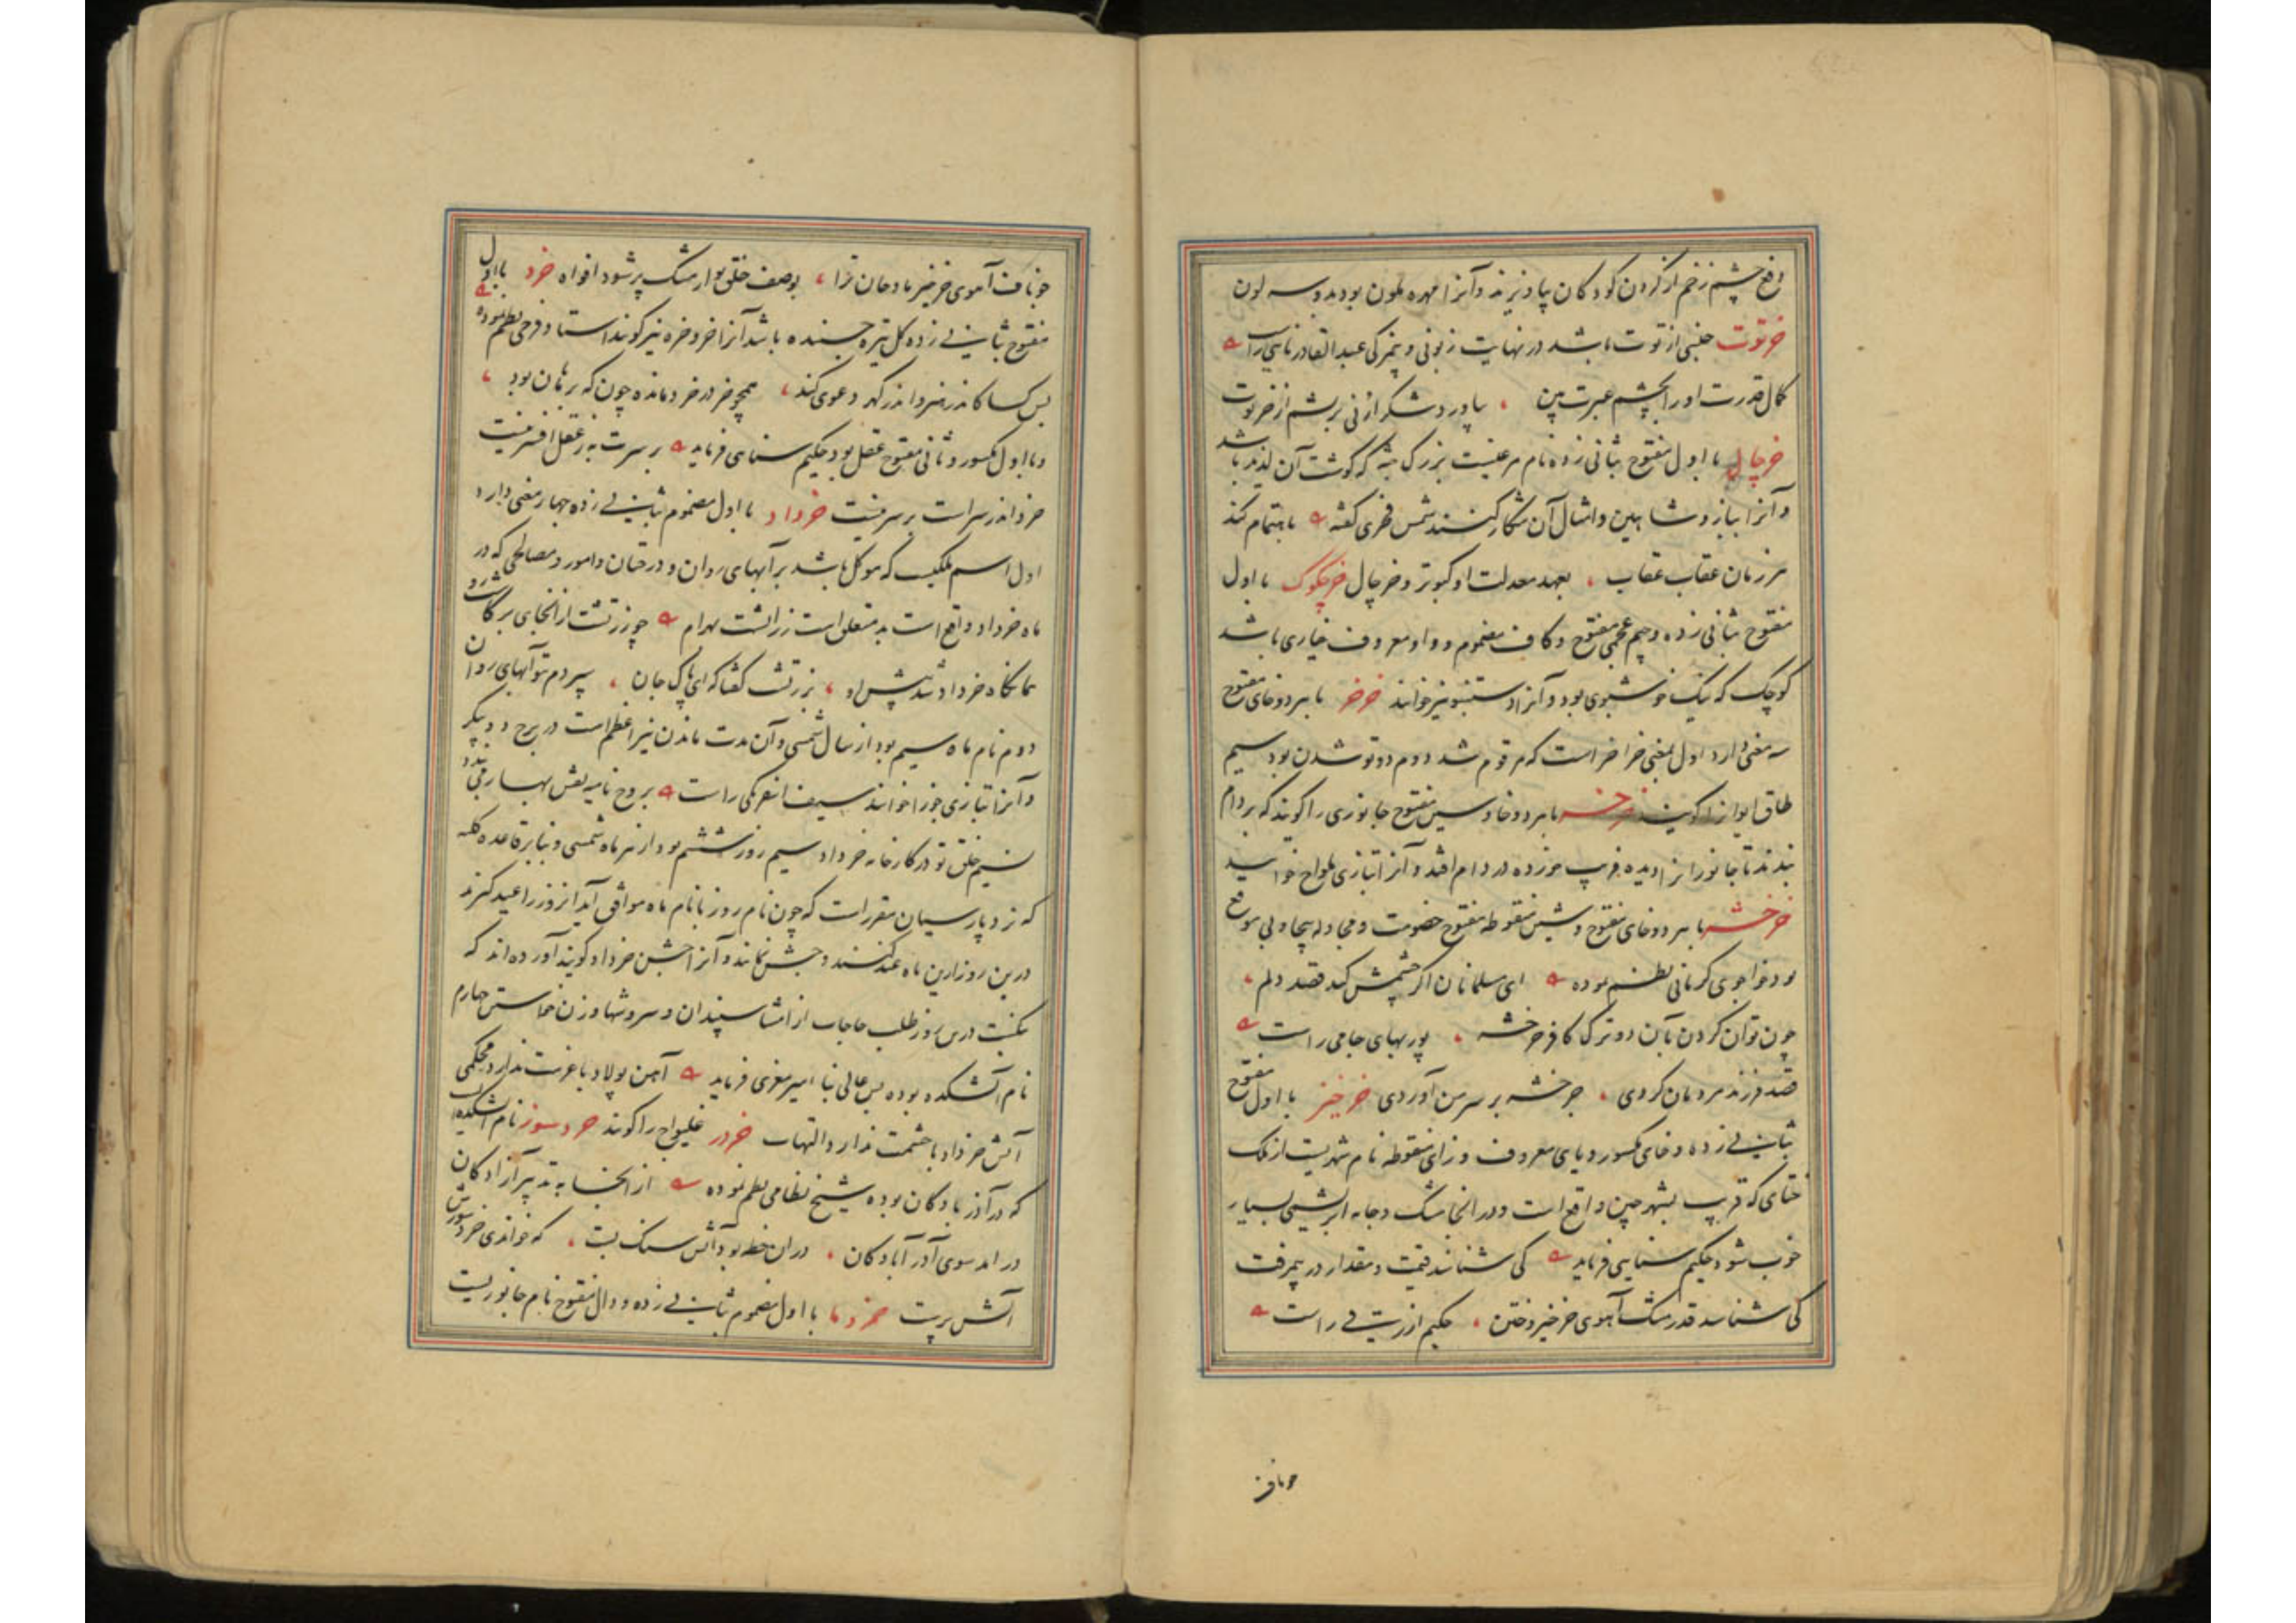 دفع چشم زخم از گردن کودکان بیاویزند و آنرا مهره ملون بود بدو سه لون
خرتوت جنسی از توت باشد در نهایت زبونی و بیمزگی عبدالقادر نایینی راست
کمال قدرت او را بچشم عبرت بین ، بیاورد شکر از نی بریشم از خرتوت
خرچال با اول مفتوح بثانی زده نام مرغیست بزرگ جثه که گوشت آن لذیذ باشد
و آنرا بباز و شاهین و امثال آن شکار کنند شمس فخری گفته باهتمام کند
هر زمان عقاب عقاب ، بعهد معدلت او کبوتر و خرچال خرچکوک با اول
مفتوح بثانی زده و جیم عجمی مفتوح و کاف مضموم و واو معروف خیاری باشد
کوچک که نیک خوشبوی بود و آنرا دستنبو نیز خوانند خرخر با هر دو خای مفتوح
سه معنی دارد اول بمعنی خراخر است که مرقوم شد دوم دوتو شدن بود سیم
طاق ایوان را گویند خرخسه با هر دو خا و سین مفتوح جانوری را گویند که بر دام
بندند تا جانور انرا دیده فریب خورده در دام افتد و آنرا بتازی ملواح خوانند
خرخشه با هر دو خای مفتوح و شین منقوطه مفتوح خصومت و مجادله بیجا و بی موقع
بود خواجوی کرمانی نظم نموده ای مسلمانان اگر چشمش کند قصد دلم ،
چون توان کردن بآن دو ترک کافر خرخشه ، پوربهای جامی راست
قصد فرزند مردمان کردی ، خرخشه بر سر من آوردی خرخیز با اول مفتوح
بثانی زده و خای مکسور و یای معروف و زای منقوطه نام شهریست از ملک
ختای که قریب بشهر چین واقع است و در انجا مشک و جامه ابریشمی بسیار
خوب شود حکیم سنایی فرماید کی شناسند قیمت و مقدار در بیمعرفت
کی شناسد قدر مشک آهوی خرخیز و ختن ، حکیم ازرقی راست
چو ناف
چو ناف آهوی خرخیز مادحان ترا ، بوصف خلق تو از مشک پر شود افواه خرد با اول
مفتوح بثانی زده گل تیره چسبنده باشد آنرا خر و خره نیز گویند استاد فرخی نظم نموده
بس کسا کاندر هنر و اندر گهر دعوی کند ، همچو خر در خرد مانده چون که برهان بود ،
و با اول مکسور و ثانی مفتوح عقل بود حکیم سنایی فرماید بر سرت به ز عقل افسر نیست
خرد اندر سر است بر سر نیست خرداد با اول مضموم بثانی زده چهار معنی دارد
اول اسم ملکیست که موکل باشد بر آبهای روان و درختان و امور و مصالحی که در
ماه خرداد واقع است بدو متعلق است زراتشت بهرام چو زرتشت از انجای برگاشت رو
همانگاه خرداد شد پیش او ، بزرتشت گفتا که ای پاک جان ، سپردم بتو آبهای روان
دوم نام ماه سیم بود از سال شمسی و آن مدت ماندن نیر اعظم است در برج دو پیکر
و آنرا بتازی جوزا خوانند سیف اسفرنگی راست بروح نامیه نقش بهار می بندد
نسیم خلق تو در کارخانه خرداد سیم روز ششم بود از هر ماه شمسی و بنا بر قاعده کلیه
که نزد پارسیان مقرر است که چون نام روز با نام ماه موافق آید آنروز را عید گیرند
درین روز ازین ماه عید کنند و جشن نمایند و آنرا جشن خرداد گویند آورده اند که
نیکست درین روز طلب حاجات از امشاسپندان و سروشها و زن خواستن چهارم
نام آتشکده بوده بس عالی بنا امیر معزی فرماید آهن پولاد با عزمت ندارد محکمی
آتش خرداد با خشمت ندارد التهاب خردر غلیواج را گویند خردسوز نام آتشکده ایست
که در آذربادگان بوده شیخ نظامی نظم نموده از انجا به تدبیر آزادگان
در آمد سوی آذرآبادگان ، در ان خطه بود آتش سنگ بست ، که خواندی خردسوزش
آتش پرست خردما با اول مضموم بثانی زده و دال مفتوح نام جانوریست